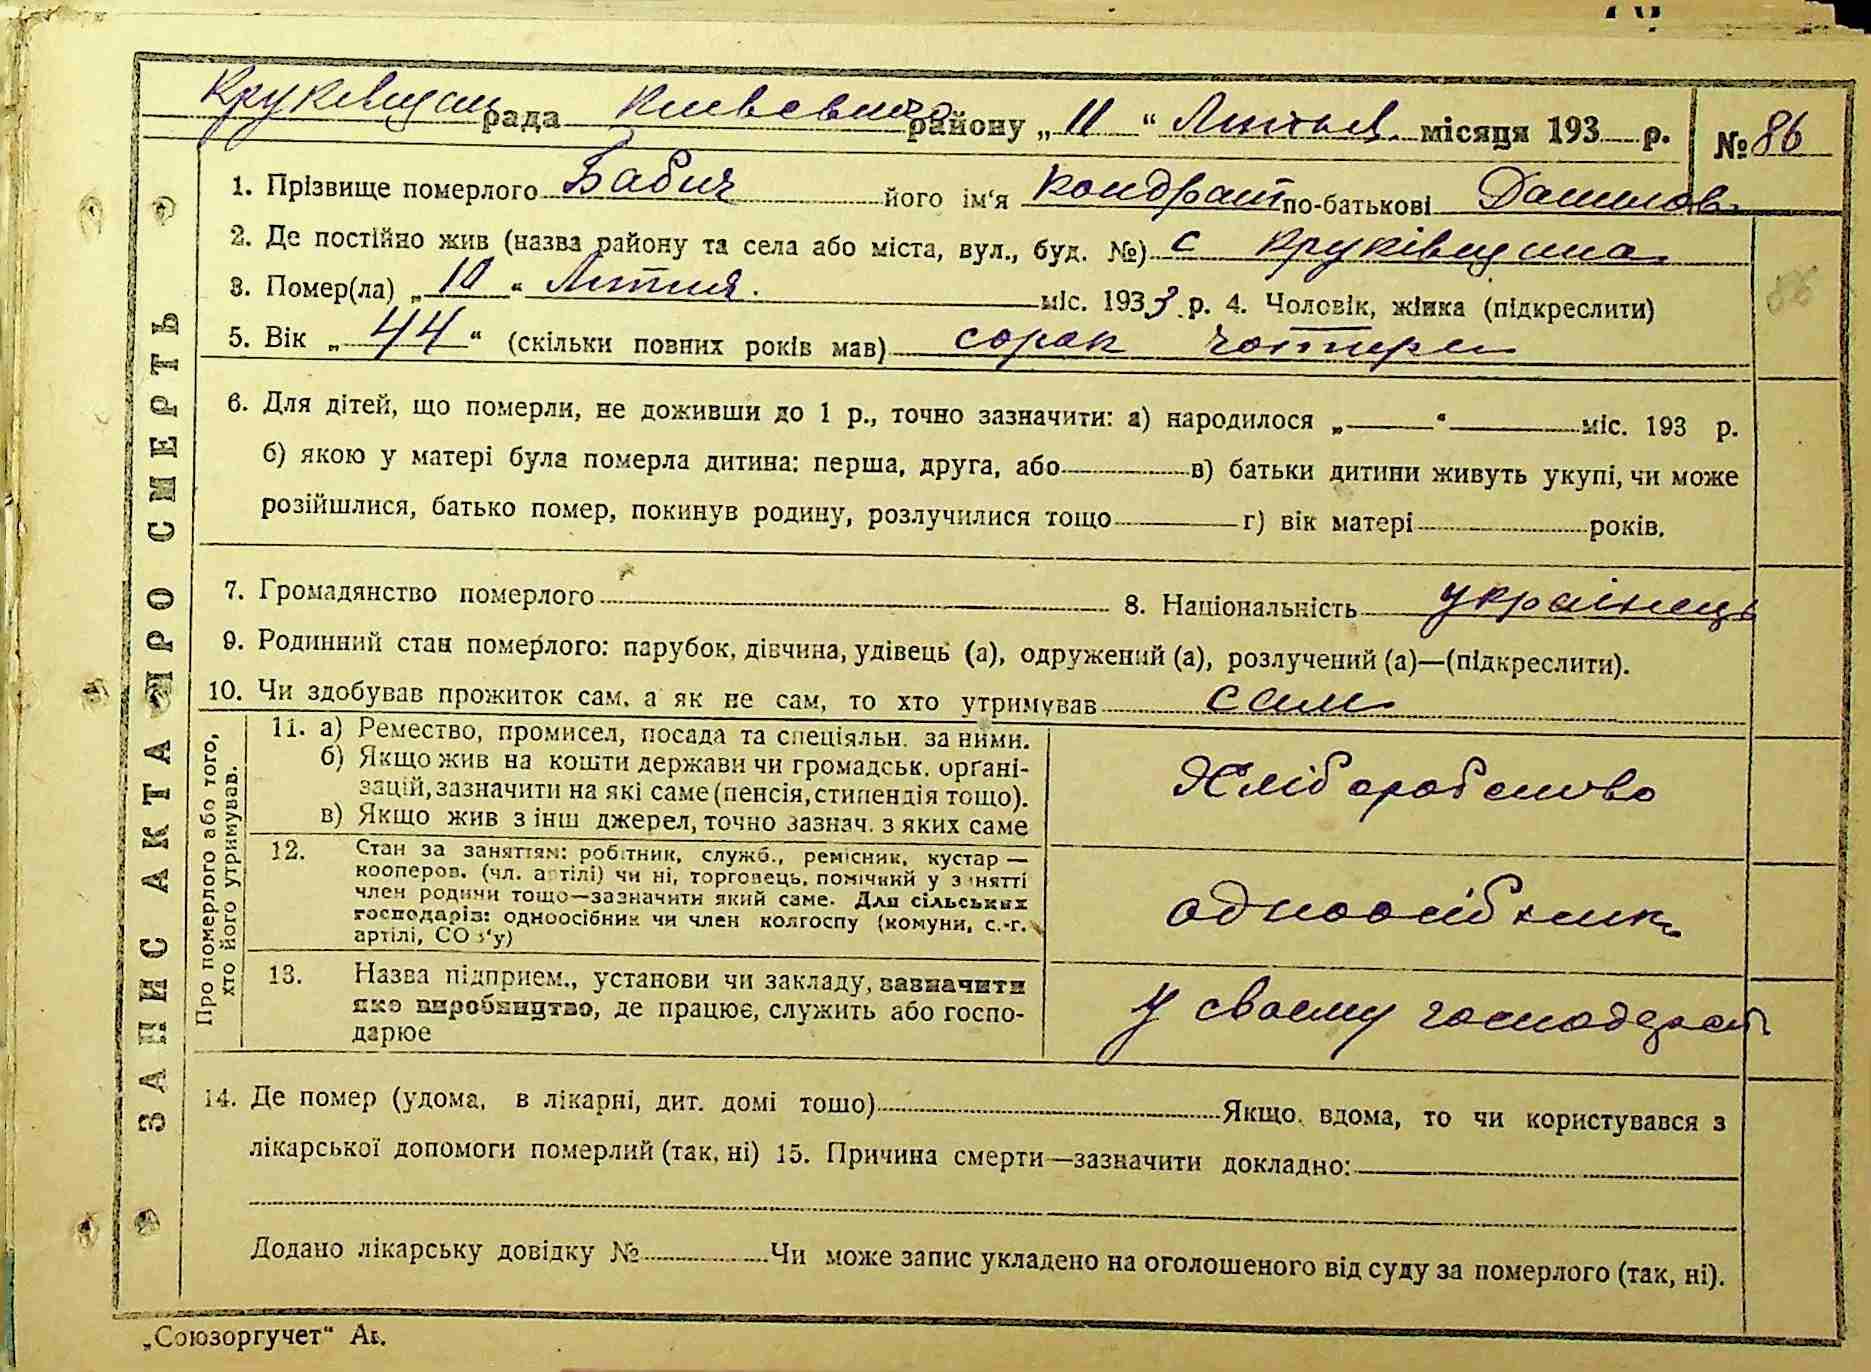 Круківщин рада Київського району „ 11 “ Липня місяця 193 р. № 86
1. Прізвище померлого Бабич його ім‘я Кондрат по-батькові Данилов
2. Де постійно жив (назва району та села або міста, вул., буд. №) с Круківщина
3. Помер(ла) „ 10 “ Липня міс. 1933 р. 4. Чоловік, жінка (підкреслити)
86
5. Вік „ 44 “ (скільки повних років мав) сорок чотири
6. Для дітей, що померли, не доживши до 1 р., точно зазначити: а) народилося „ “ міс. 193 р.
б) якою у матері була померла дитина: перша, друга, або в) батьки дитини живуть укупі, чи може
розійшлися, батько помер, покинув родину, розлучилися тощо г) вік матері років.
7. Громадянство померлого 8. Національність українець
9. Родинний стан померлого: парубок, дівчина, удівець (а), одружений (а), розлучений (а)—(підкреслити).
10. Чи здобував прожиток сам, а як не сам, то хто утримував сам
ЗАПИС АКТА ПРО СМЕРТЬ
Про померлого або того,
хто його утримував.
11. а) Ремество, промисел, посада та спеціяльн. за ними.
б) Якщо жив на кошти держави чи громадськ. органі-
зацій, зазначити на які саме (пенсія, стипендія тощо).
в) Якщо жив з інш джерел, точно зазнач. з яких саме
Хліборобство
12. Стан за заняттям: робітник, служб., ремісник, кустар —
кооперов. (чл. артілі) чи ні, торговець, помічний у занятті
член родини тощо—зазначити який саме. Для сільських
господарів: одноосібник чи член колгоспу (комуни, с.-г.
артілі, СОЗ‘у)
одноосібник
13. Назва підприєм., установи чи закладу, зазначити
яке виробництво, де працює, служить або госпо-
дарює
У своєму господарст
14. Де помер (удома, в лікарні, дит. домі тощо) Якщо вдома, то чи користувався з
лікарської допомоги померлий (так, ні) 15. Причина смерти—зазначити докладно:
Додано лікарську довідку № Чи може запис укладено на оголошеного від суду за померлого (так, ні).
„Союзоргучет“